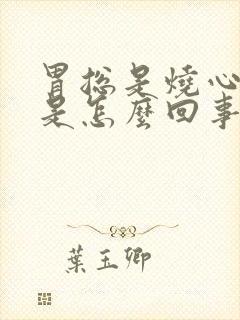 胃总是燒心
是怎麼回事
葉玉卿